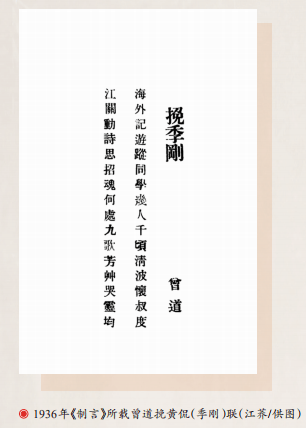 挽季剛
曾道
海外記遊蹤同學幾人千頃清波懷叔度
江關動詩思招魂何處九歌芳艸哭靈均
◉ 1936年《制言》所载曾道挽黄侃(季刚)联(江荞/供图)